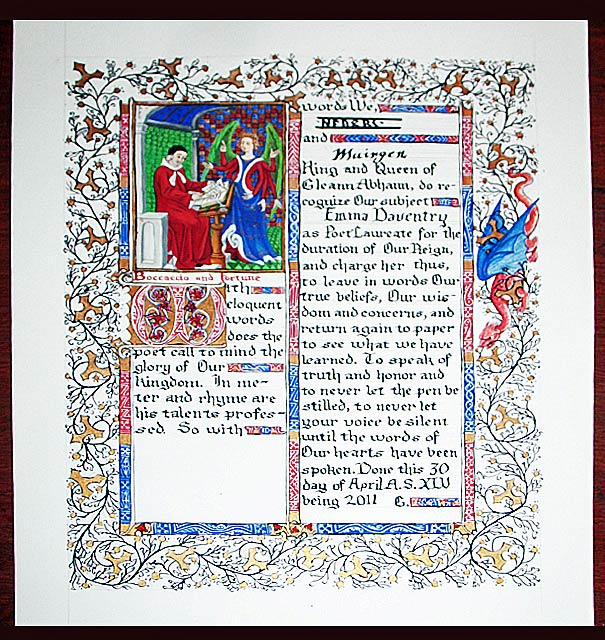 Boccaccio and fortune
With
eloquent
words
does the
poet call to mind the
glory of Our
Kingdom. In me-
ter and rhyme are
his talents profes-
sed. So with
words We,
and
Muirgen
King and Queen of
Gleann Abhann, do re-
cognize Our subject
Emma Daventry
as Poet Laureate for the
duration of Our Reign,
and charge her thus,
to leave in words Our
true beliefs, Our wis-
dom and concerns, and
return again to paper
to see what we have
learned. To speak of
truth and honor and
to never let the pen be
stilled, to never let
your voice be silent
until the words of
Our hearts have been
spoken. Done this 30
day of April A.S. XLV
being 2011